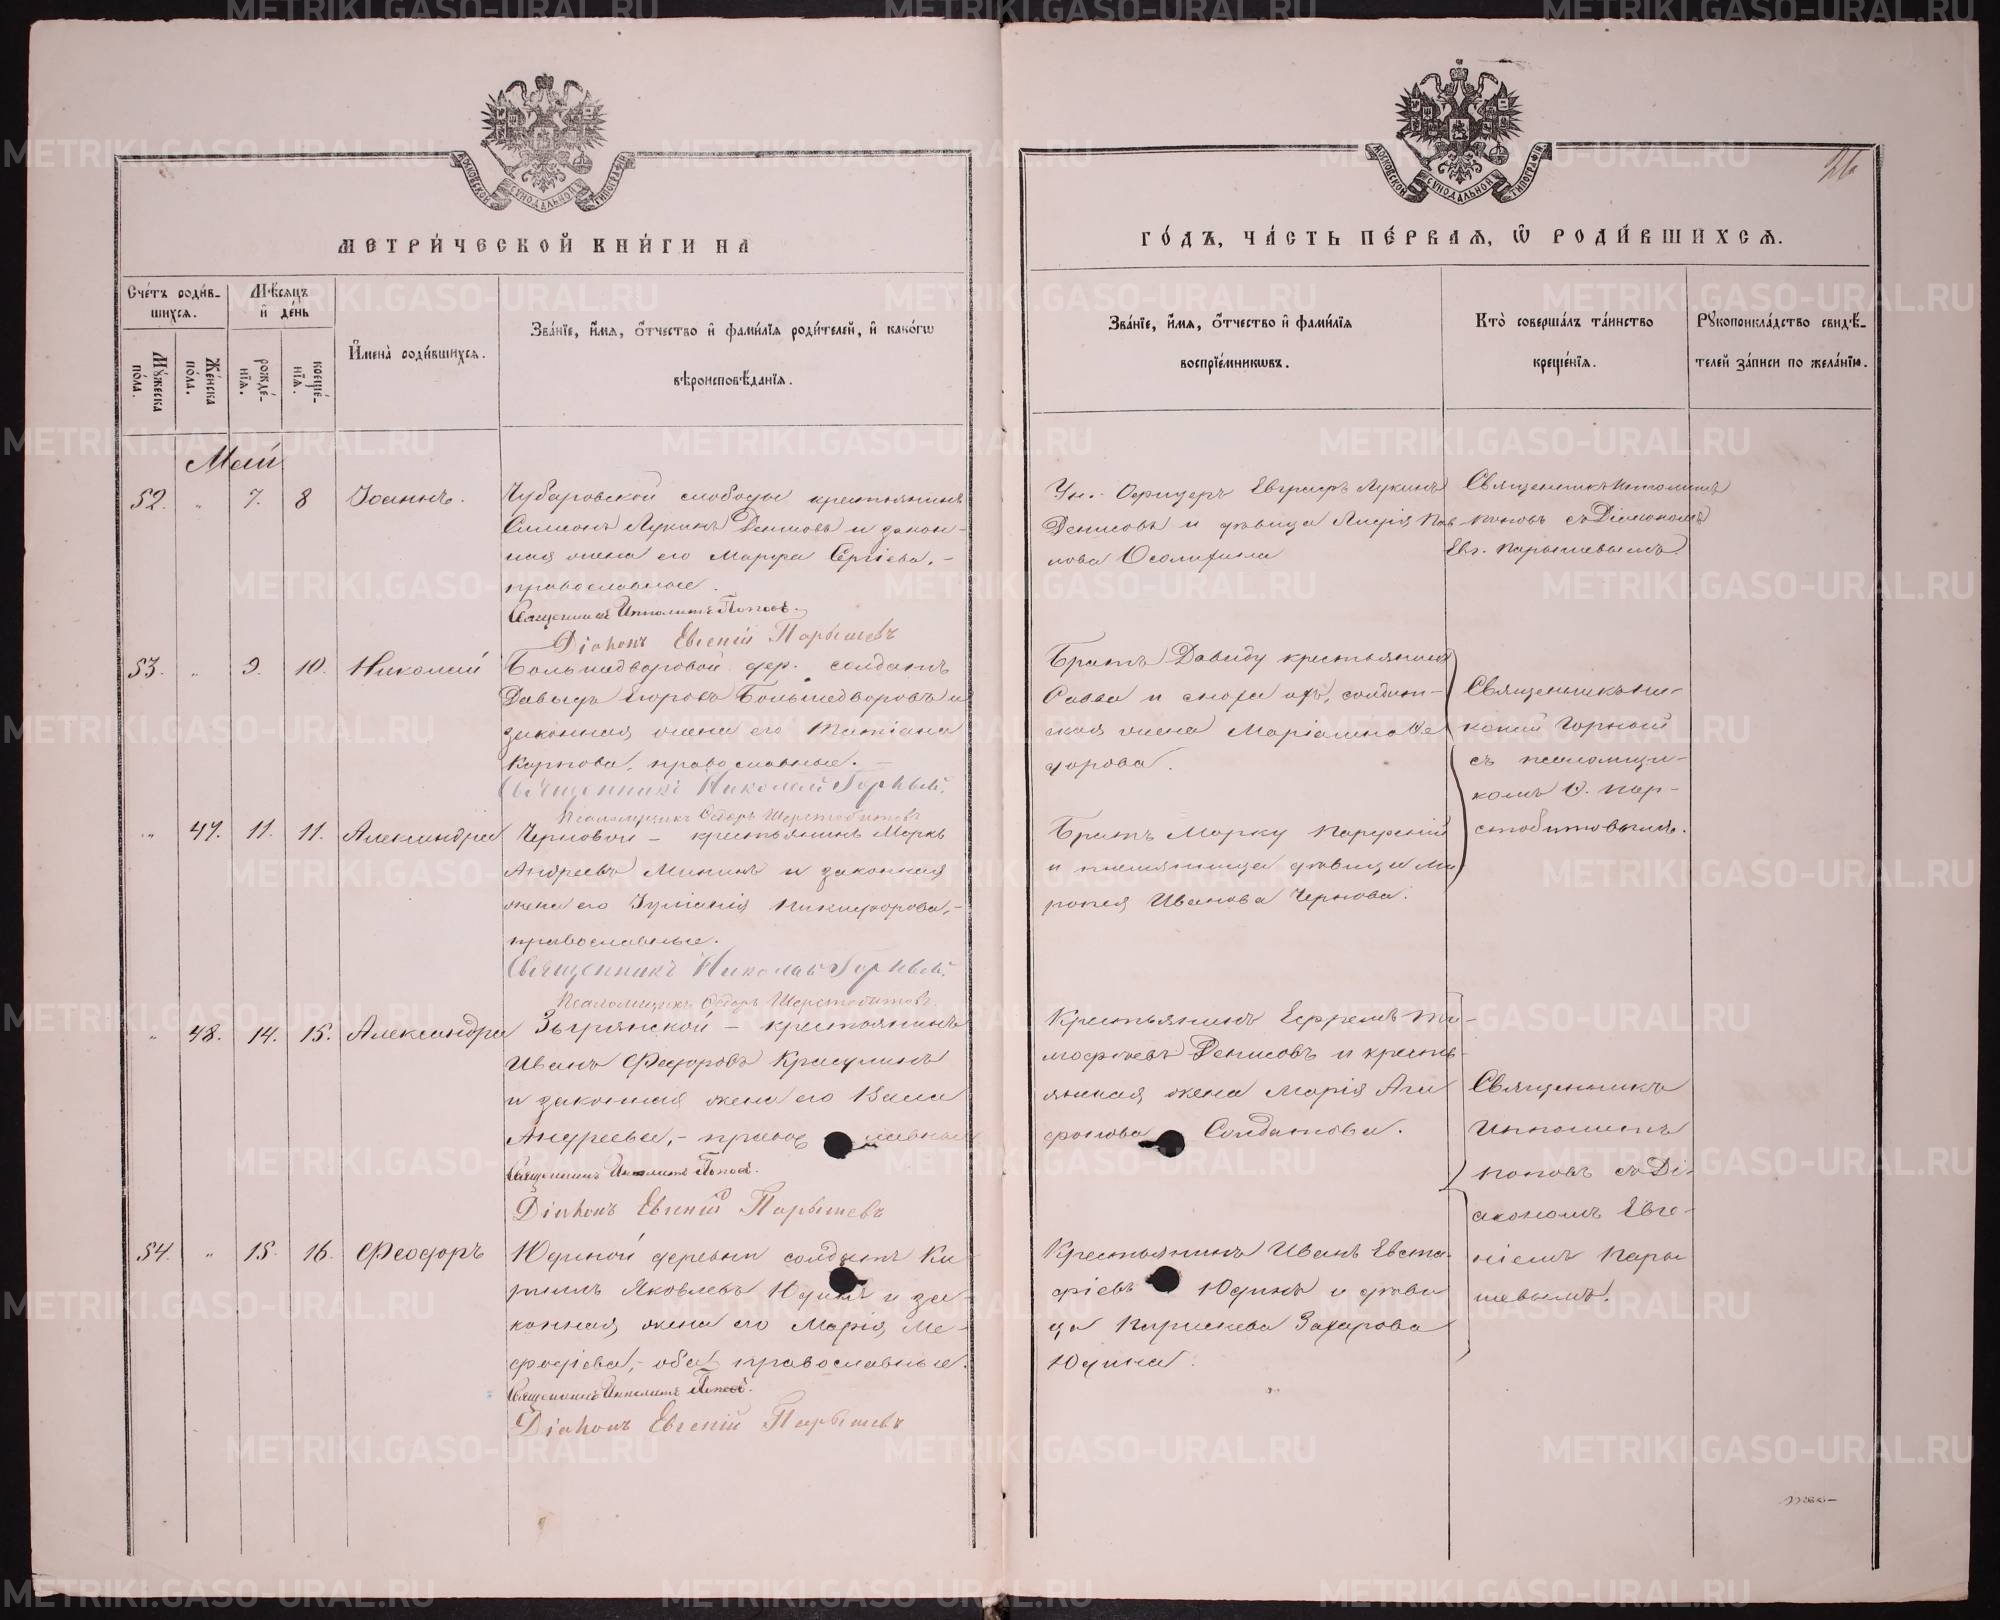 26
МОСКОВСКОЙ СУНОДАЛЬНОЙ ТИПОГРАФІИ
МОСКОВСКОЙ СУНОДАЛЬНОЙ ТИПОГРАФІИ
МЕТРИ́ЧЕСКОЙ КНИ́ГИ НА
ГО́ДЪ, ЧА́СТЬ ПЕ́РВАЯ, Ѿ РОДИ́ВШИХСѦ.
Сче́тъ роди́в-
шихсѧ.
Мѣ́сѧцъ
и҆ де́нь
Мꙋ́жеска по́ла.
Же́нска по́ла.
рожде́-нїѧ.
креще́-нїѧ.
И҆мена̀ роди́вшихсѧ.
Зва́нїе, и҆́мѧ, о҆́тчество и҆ фами́лїѧ роди́телей, и҆ како́гѡ
вѣроисповѣ́данїѧ.
Зва́нїе, и҆́мѧ, о҆́тчество и҆ фами́лїѧ
воспрїе́мникѡвъ.
Кто̀ соверша́лъ та́инство
креще́нїѧ.
Рꙋкоприкла́дство свидѣ́-
телей за́писи по жела́нїю.
Май
52. „ 7. 8 Іоаннъ.
Чубаровской слободы крестьянинъ
Симеонъ Лукинъ Денисовъ и закон-
ная жена его Марфа Сергіева, -
православные.
Священникъ Ипполитъ Поповъ.
Діаконъ Евгеній Парышевъ
Ун.- Офицеръ Евграфъ Лукинъ
Денисовъ и дѣвица Лидія Пав
лова
Священникъ Ипполитъ
Поповъ съ Діакономъ
Евг. Парышевымъ.
53. „ 9. 10. Николай
Большедворовой дер. солдатъ
Давыдъ Егоровъ Большедворовъ и
законная жена его Татіана
Карпова, православные. -
Священникъ Николай Горный.
Псаломщикъ Ѳедоръ Шерстобитовъ
Братъ Давиду крестьянинъ
Савва и сноха ихъ, солдат-
ская жена Маріамна Ѳе
дорова.
Священникъ Ни-
колай Горный
съ псаломщи-
комъ Ѳ.
„ 47. 11. 11. Александра
Черновой - крестьянинъ Маркъ
Андреевъ Мининъ и законная
жена его Іуліанія Никифорова, -
православные.
Священникъ Николай Горный.
Псаломщикъ Ѳедоръ Шерстобитовъ.
Братъ Марку Парфеній
и племянница дѣвица Ма
Иванова Чернова.
„ 48. 14. 15. Александра
Зырянской - крестьянинъ
Иванъ Федоровъ Красулинъ
и законная жена его Васса
Андреева, - православные
Священникъ Ипполитъ Поповъ.
Діаконъ Евгеній Парышевъ
Крестьянинъ Ефремъ Ти-
мофеевъ Денисовъ и кресть-
янская жена Марія Ага
фонова Солдатова.
Священникъ
Ипполитъ
Поповъ съ Ді-
акономъ Евге-
ніемъ Пары
шевымъ.
54. „ 15. 16. Феодоръ
Юдиной деревни солдатъ Ки
риллъ Яковлевъ Юдинъ и за-
конная жена его Марія Ме-
фодіева, - оба православные.
Священникъ Ипполитъ Поповъ.
Діаконъ Евгеній Парышевъ
Крестьянинъ Иванъ Евста
фіевъ Юдинъ и дѣви
ца Парасκева Захарова
Юдина.
METRIKI.GASO-URAL.RU